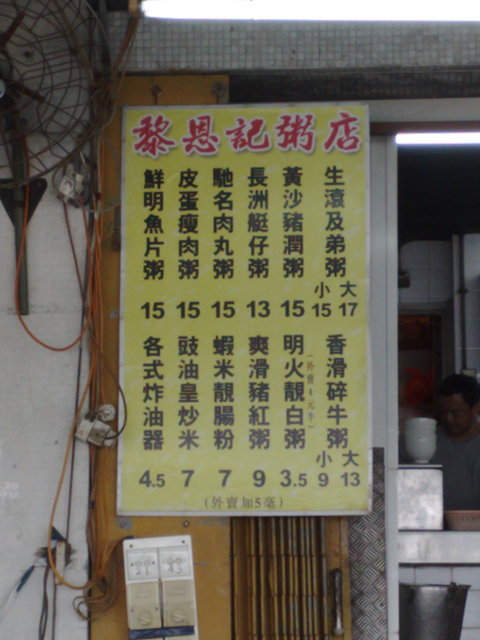 黎恩記粥店
生滾及弟粥
小 大
15 17
黃沙豬潤粥
15
長洲艇仔粥
13
馳名肉丸粥
15
皮蛋瘦肉粥
15
鮮明魚片粥
15
香滑碎牛粥
小 大
9 13
明火靚白粥
(外賣4元半)
3.5
爽滑豬紅粥
9
蝦米靚腸粉
7
豉油皇炒米
7
各式炸油器
4.5
(外賣加5毫)